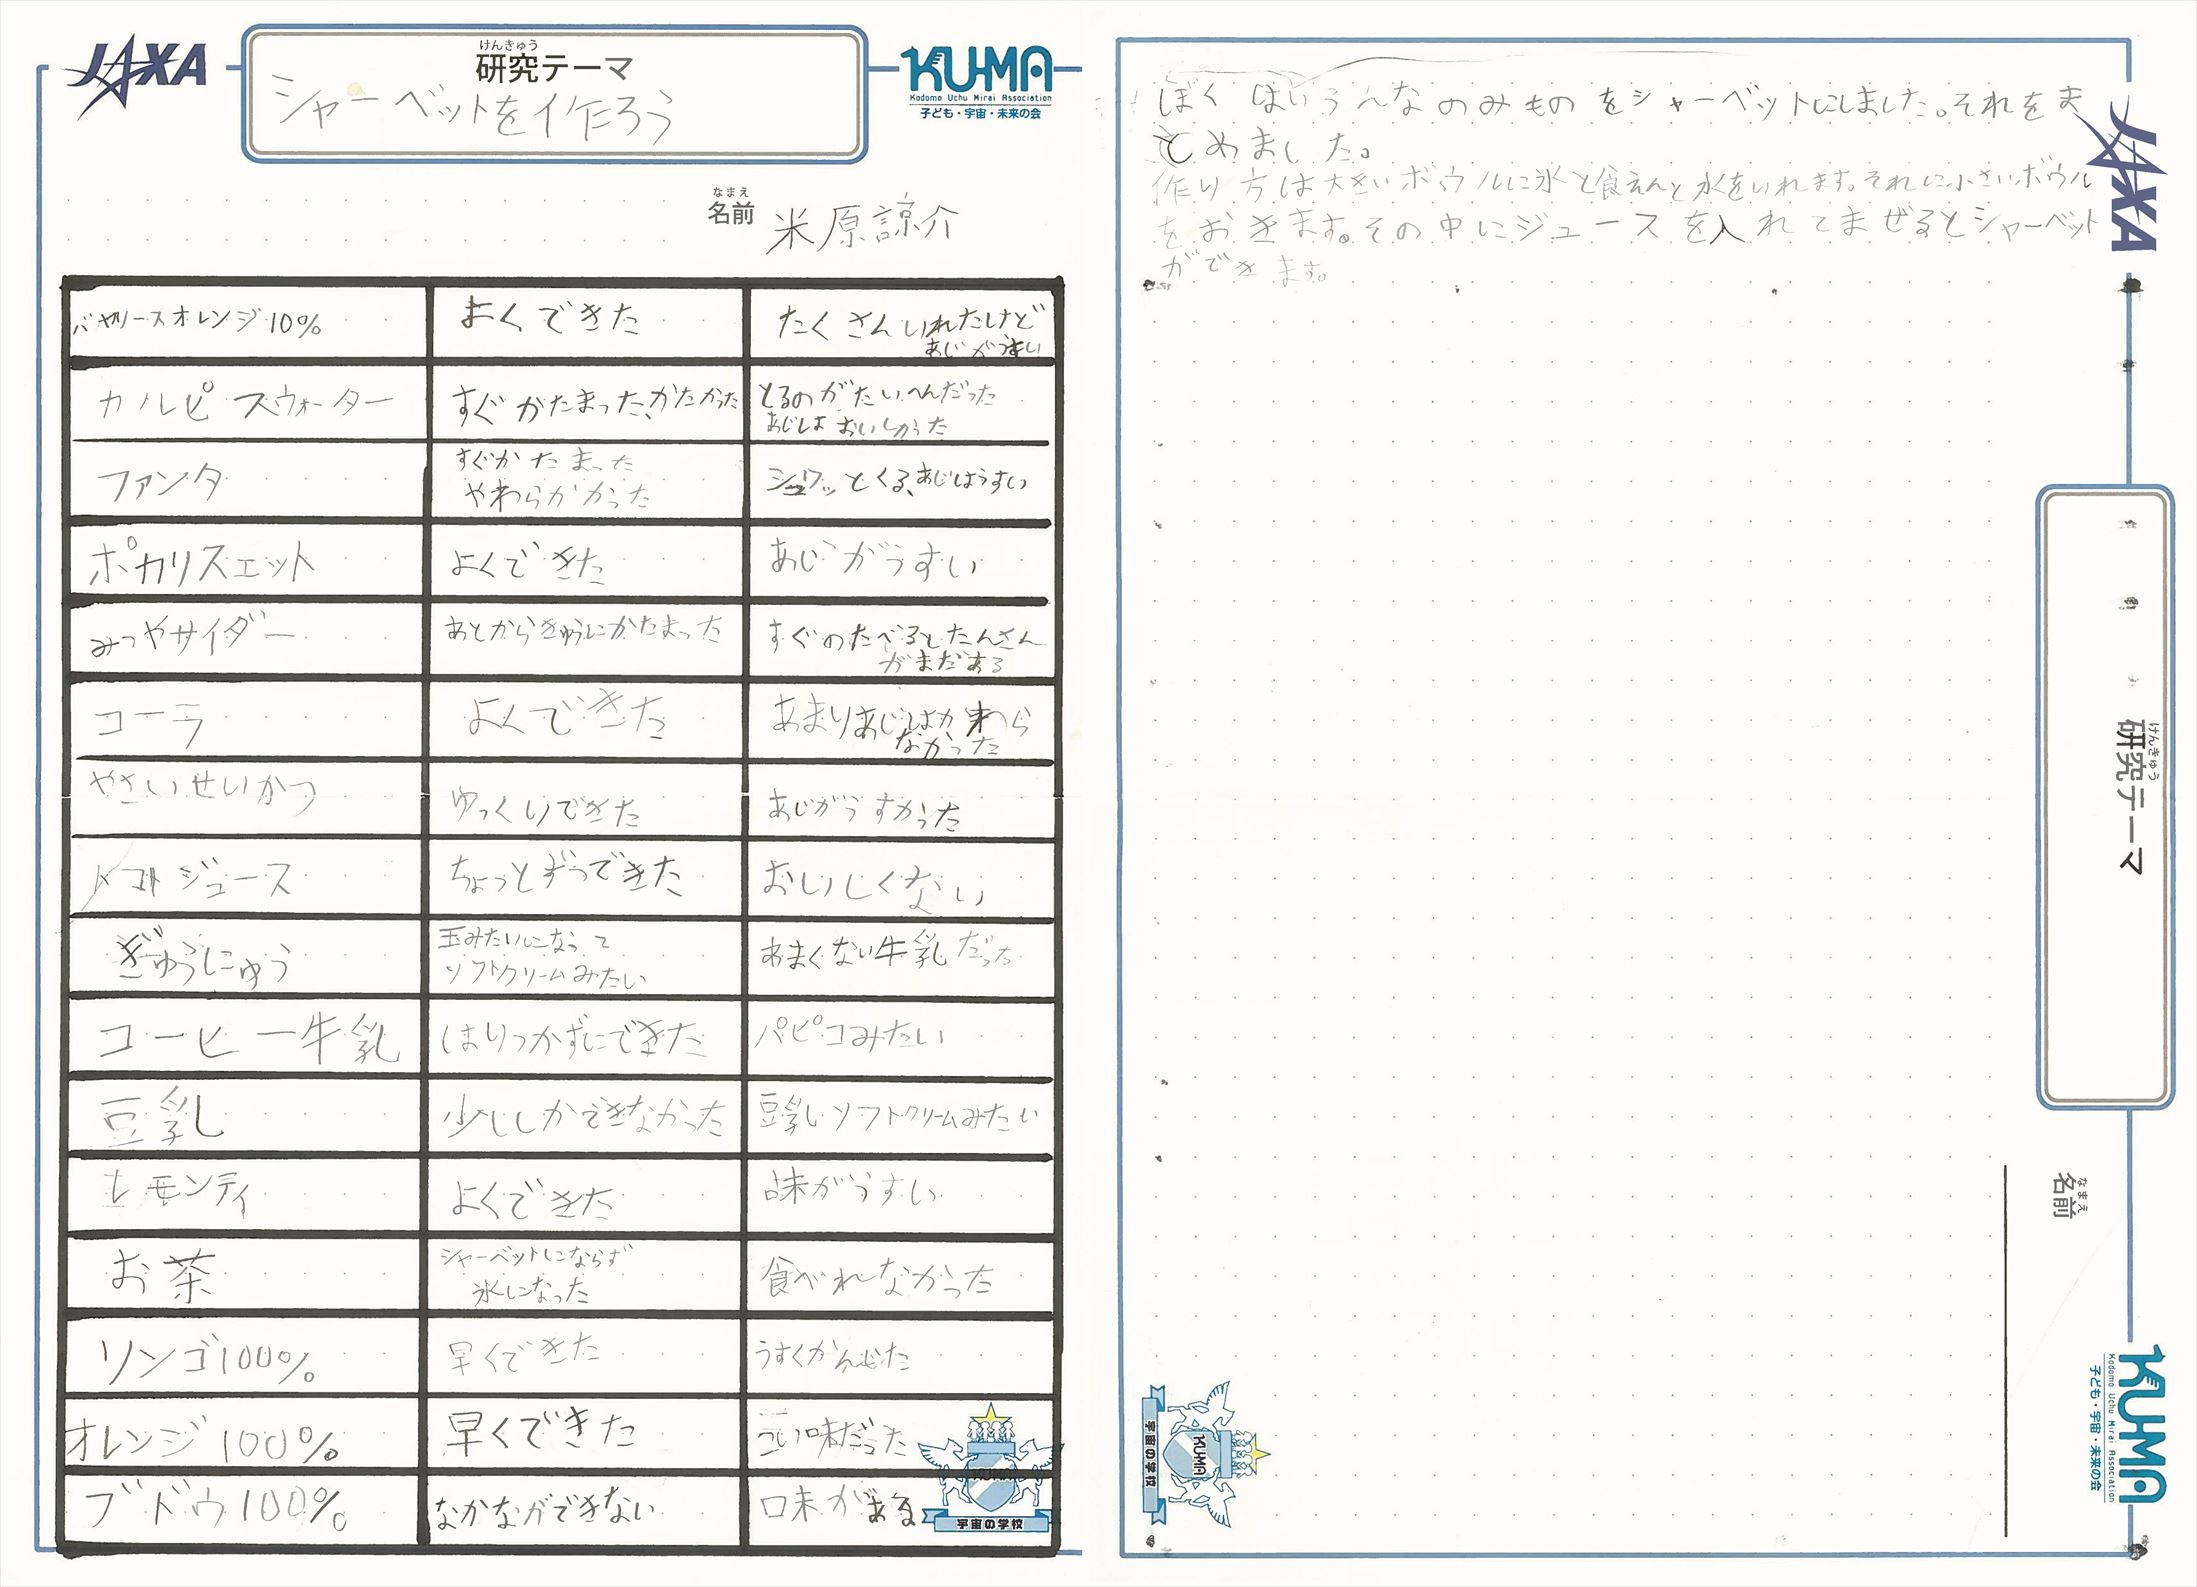 JAXA
けんきゅう
研究テーマ
シャーベットを作ろう
KU-MA
Kodomo Uchu Mirai Association
子ども・宇宙・未来の会
なまえ
名前 米原諒介
バヤリースオレンジ10% よくできた たくさんいれたけど
あじがうすい
カルピスウォーター すぐかたまった、かたかった とるのがたいへんだった
あじは おいしかった
ファンタ すぐかたまった
やわらかかった
シュワッとくる、あじはうすい
ポカリスエット よくできた あじがうすい
みつやサイダー あとからきゅうにかたまった すぐのたべるとたんさん
がまだある
コーラ よくできた あまりあじはわから
なかった
やさいせいかつ ゆっくりできた あじがうすかった
トマトジュース ちょっとずつできた おいしくない
ぎゅうにゅう 玉みたいになって
ソフトクリームみたい
あまくない牛乳だった
コーヒー牛乳 はりつかずにできた パピコみたい
豆乳 少ししかできなかった 豆乳ソフトクリームみたい
レモンティ よくできた 味がうすい
お茶 シャーベットにならず
氷になった
食べれなかった
リンゴ100% 早くできた うすくかんじた
オレンジ100% 早くできた こい味だった
ブドウ100% なかなかできない 味がある
KUMA
宇宙の学校
ぼくはいろんなのみものをシャーベットにしました。それをま
とめました。
作り方は大きいボウルに氷と食えんと水をいれます。それに小さいボウル
をおきます。その中にジュースを入れてまぜるとシャーベット
ができます。
JAXA
けんきゅう
研究テーマ
なまえ
名前
KU-MA
Kodomo Uchu Mirai Association
子ども・宇宙・未来の会
KUMA
宇宙の学校